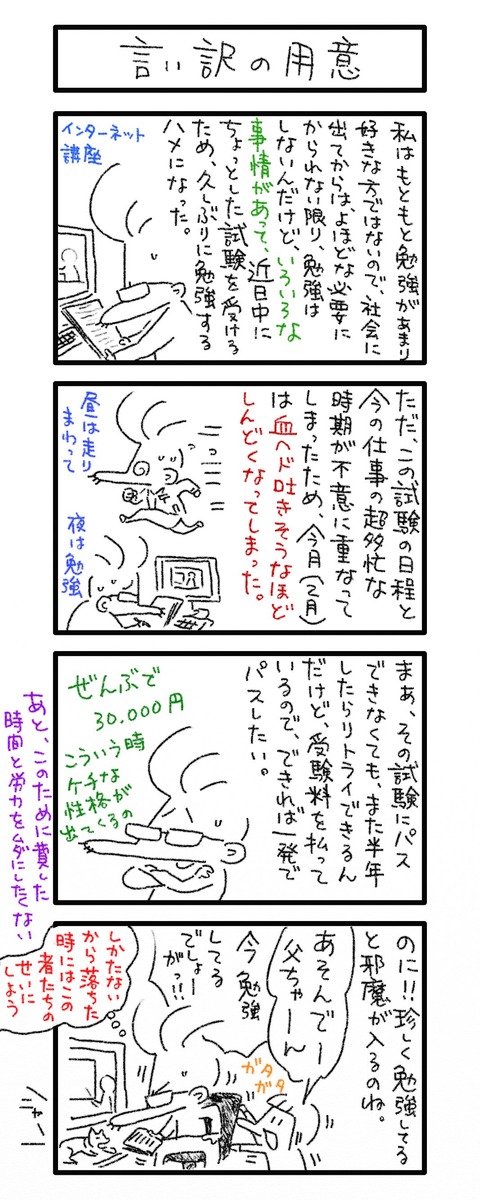 言い訳の用意
私はもともと勉強があまり
好きな方ではないので、社会に
出てからは、よほどな必要に
かられない限り、勉強は
しないんだけど、いろいろな
事情があって、近日中に
ちょっとした試験を受ける
ため、久しぶりに勉強する
ハメになった。
インターネット
講座
ただ、この試験の日程と
今の仕事の超多忙な
時期が不意に重なって
しまったため、今月(2月)
は血ヘド吐きそうなほど
しんどくなってしまった。
昼は走り
まわって
夜は勉強
まあ、その試験にパス
できなくても、また半年
したらリトライできるん
だけど、受験料を払って
いるので、できれば一発で
パスしたい。
ぜんぶで
30.000円
こういう時
ケチな
性格が
出てくるの
あと、このために費した
時間と労力をムダにしたくない
のに!!珍しく勉強してる
と邪魔が入るのね。
あそんでー
父ちゃーん
今勉強
してる
でしょー
がっ!!
ガタ
ガタ
しかたない
から落ちた
時にはこの
者たちの
せいに
しよう
ニャー